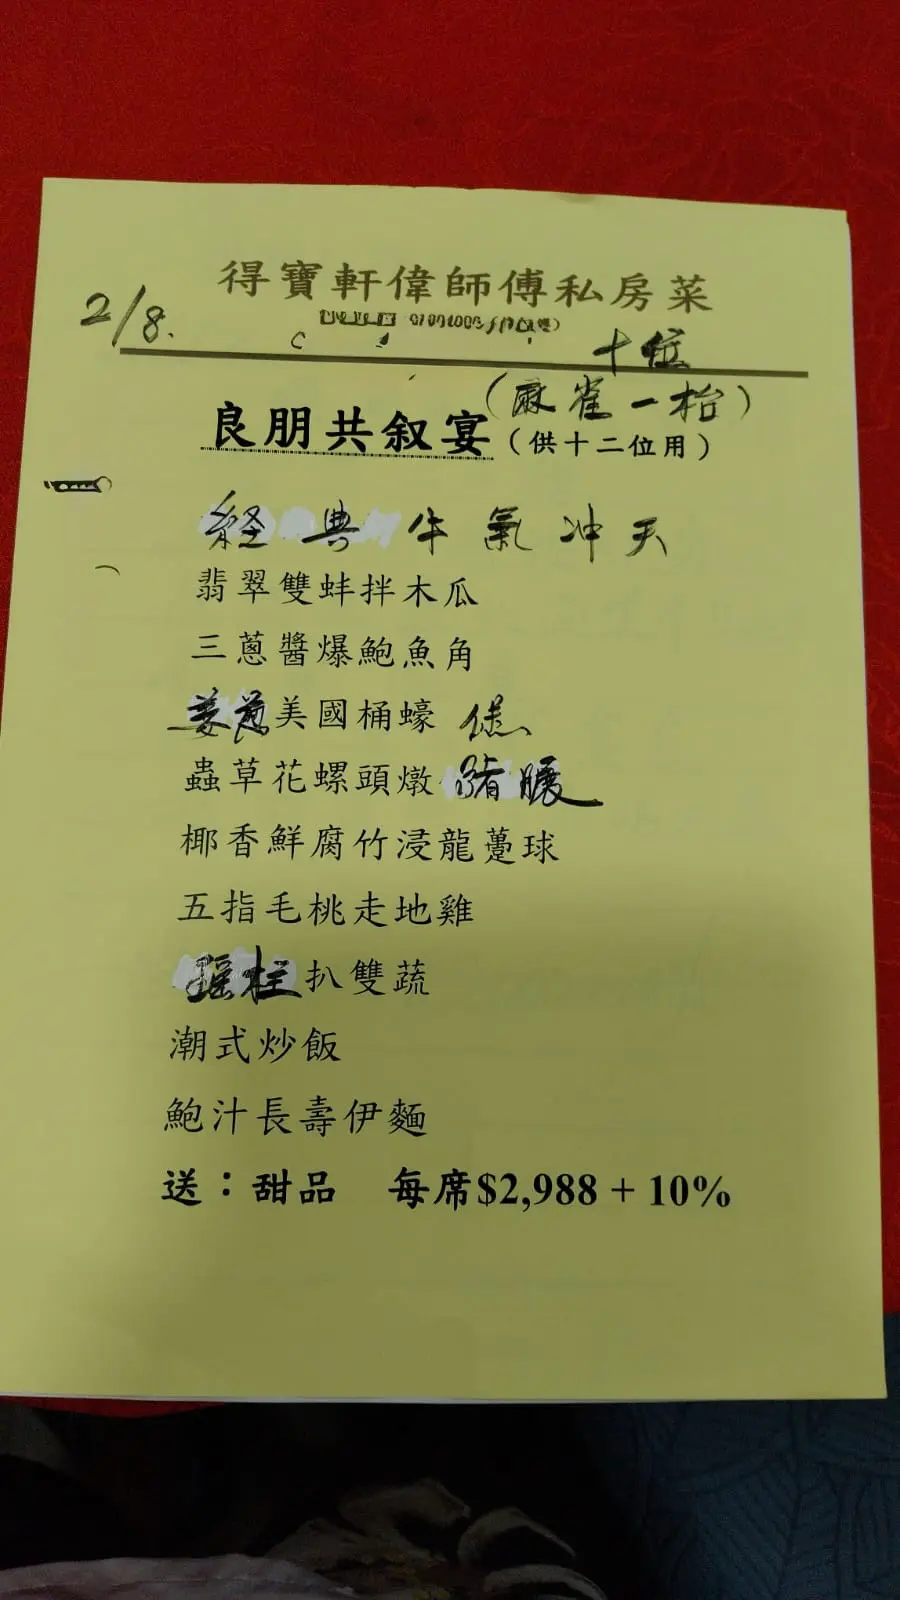 得寶軒偉師傅私房菜
2/8.
十位
(麻雀一枱)
良朋共叙宴(供十二位用)
経典牛氣冲天
翡翠雙蚌拌木瓜
三蔥醬爆鮑魚角
美國桶蠔
蟲草花螺頭燉豬𦟌
椰香鮮腐竹浸龍躉球
五指毛桃走地雞
瑶柱扒雙蔬
潮式炒飯
鮑汁長壽伊麵
送:甜品 每席$2,988 + 10%